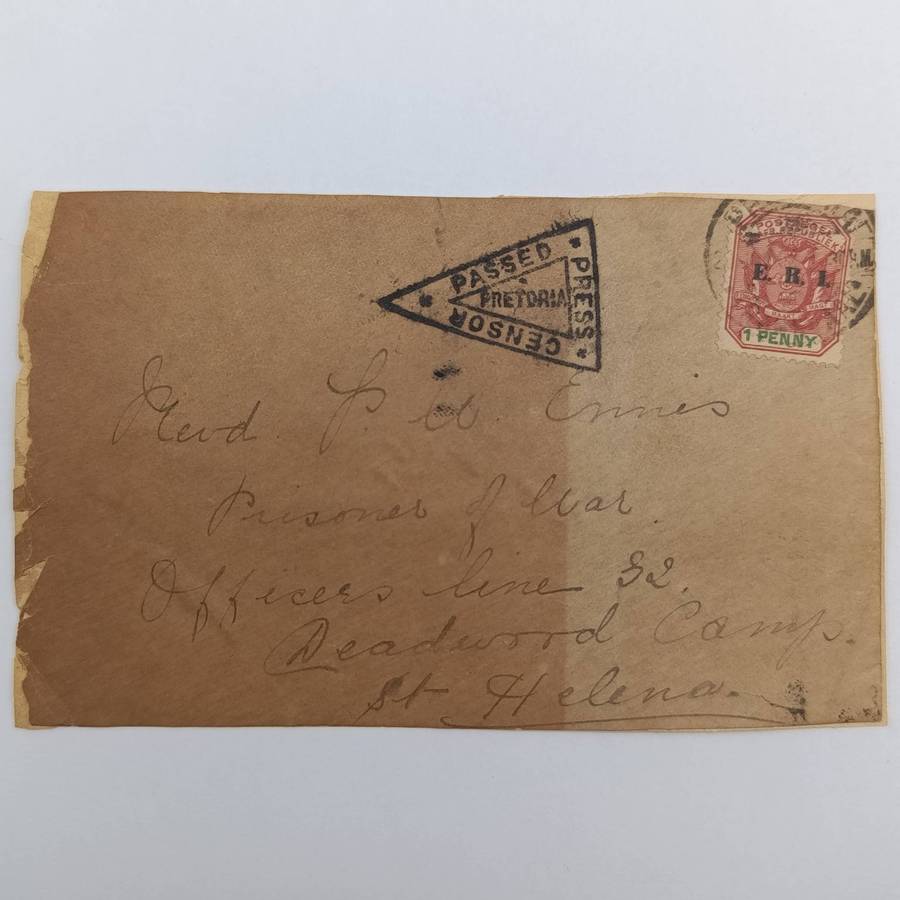 PASSED
PRESS
CENSOR
PRETORIA
POSTZEGEL
E. R. I.
MAAKT MAGT
1 PENNY
Revd. P. A. Ennis
Prisoner of War.
Officers line 32.
Deadwood Camp.
St Helena.